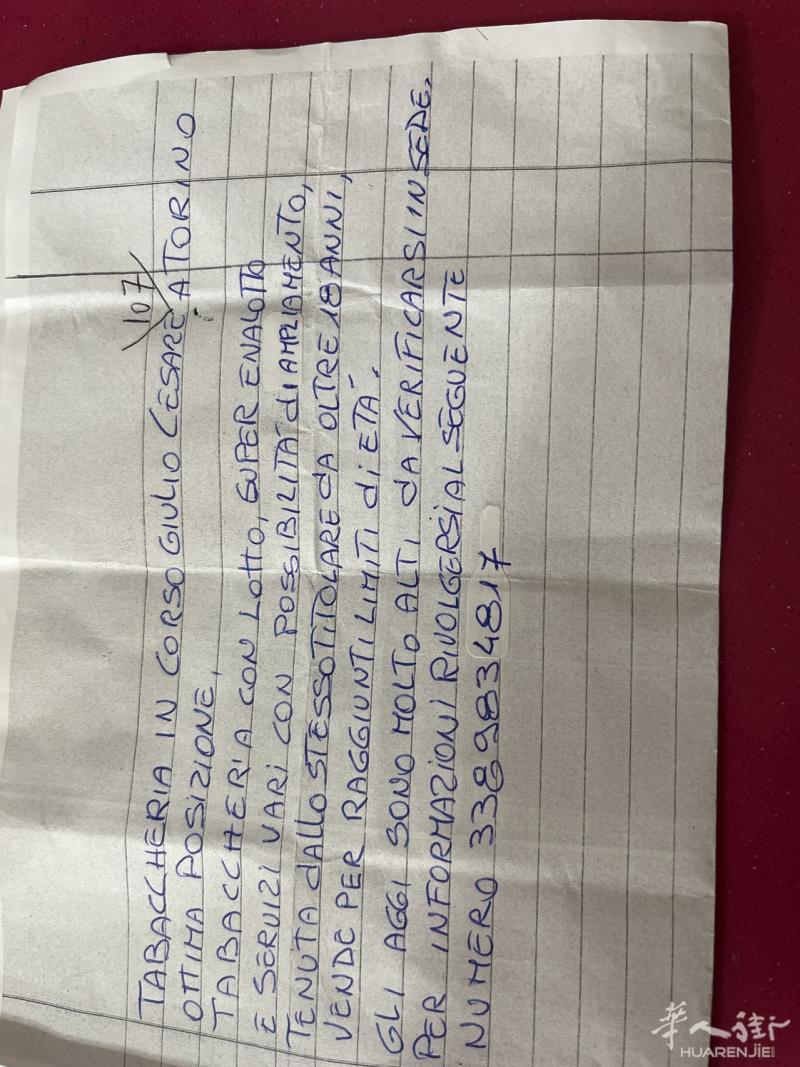 107
TABACCHERIA IN CORSO GIULIO CESARE A TORINO
OTTIMA POSIZIONE,
TABACCHERIA CON LOTTO, SUPER ENALOTTO
E SERVIZI VARI CON POSSIBILITÀ di AMPLIAMENTO,
TENUTA dALLO STESSO TITOLARE dA OLTRE 18 ANNI,
VENDE PER RAGGIUNTI LIMITI di ETÀ.
GLI AGGI SONO MOLTO ALTI dA VERIFICARSI IN SEDE.
PER INFORMAZIONI RIVOLGERSI AL SEGUENTE
NUMERO 3389834817
華人街
HUARENJIE